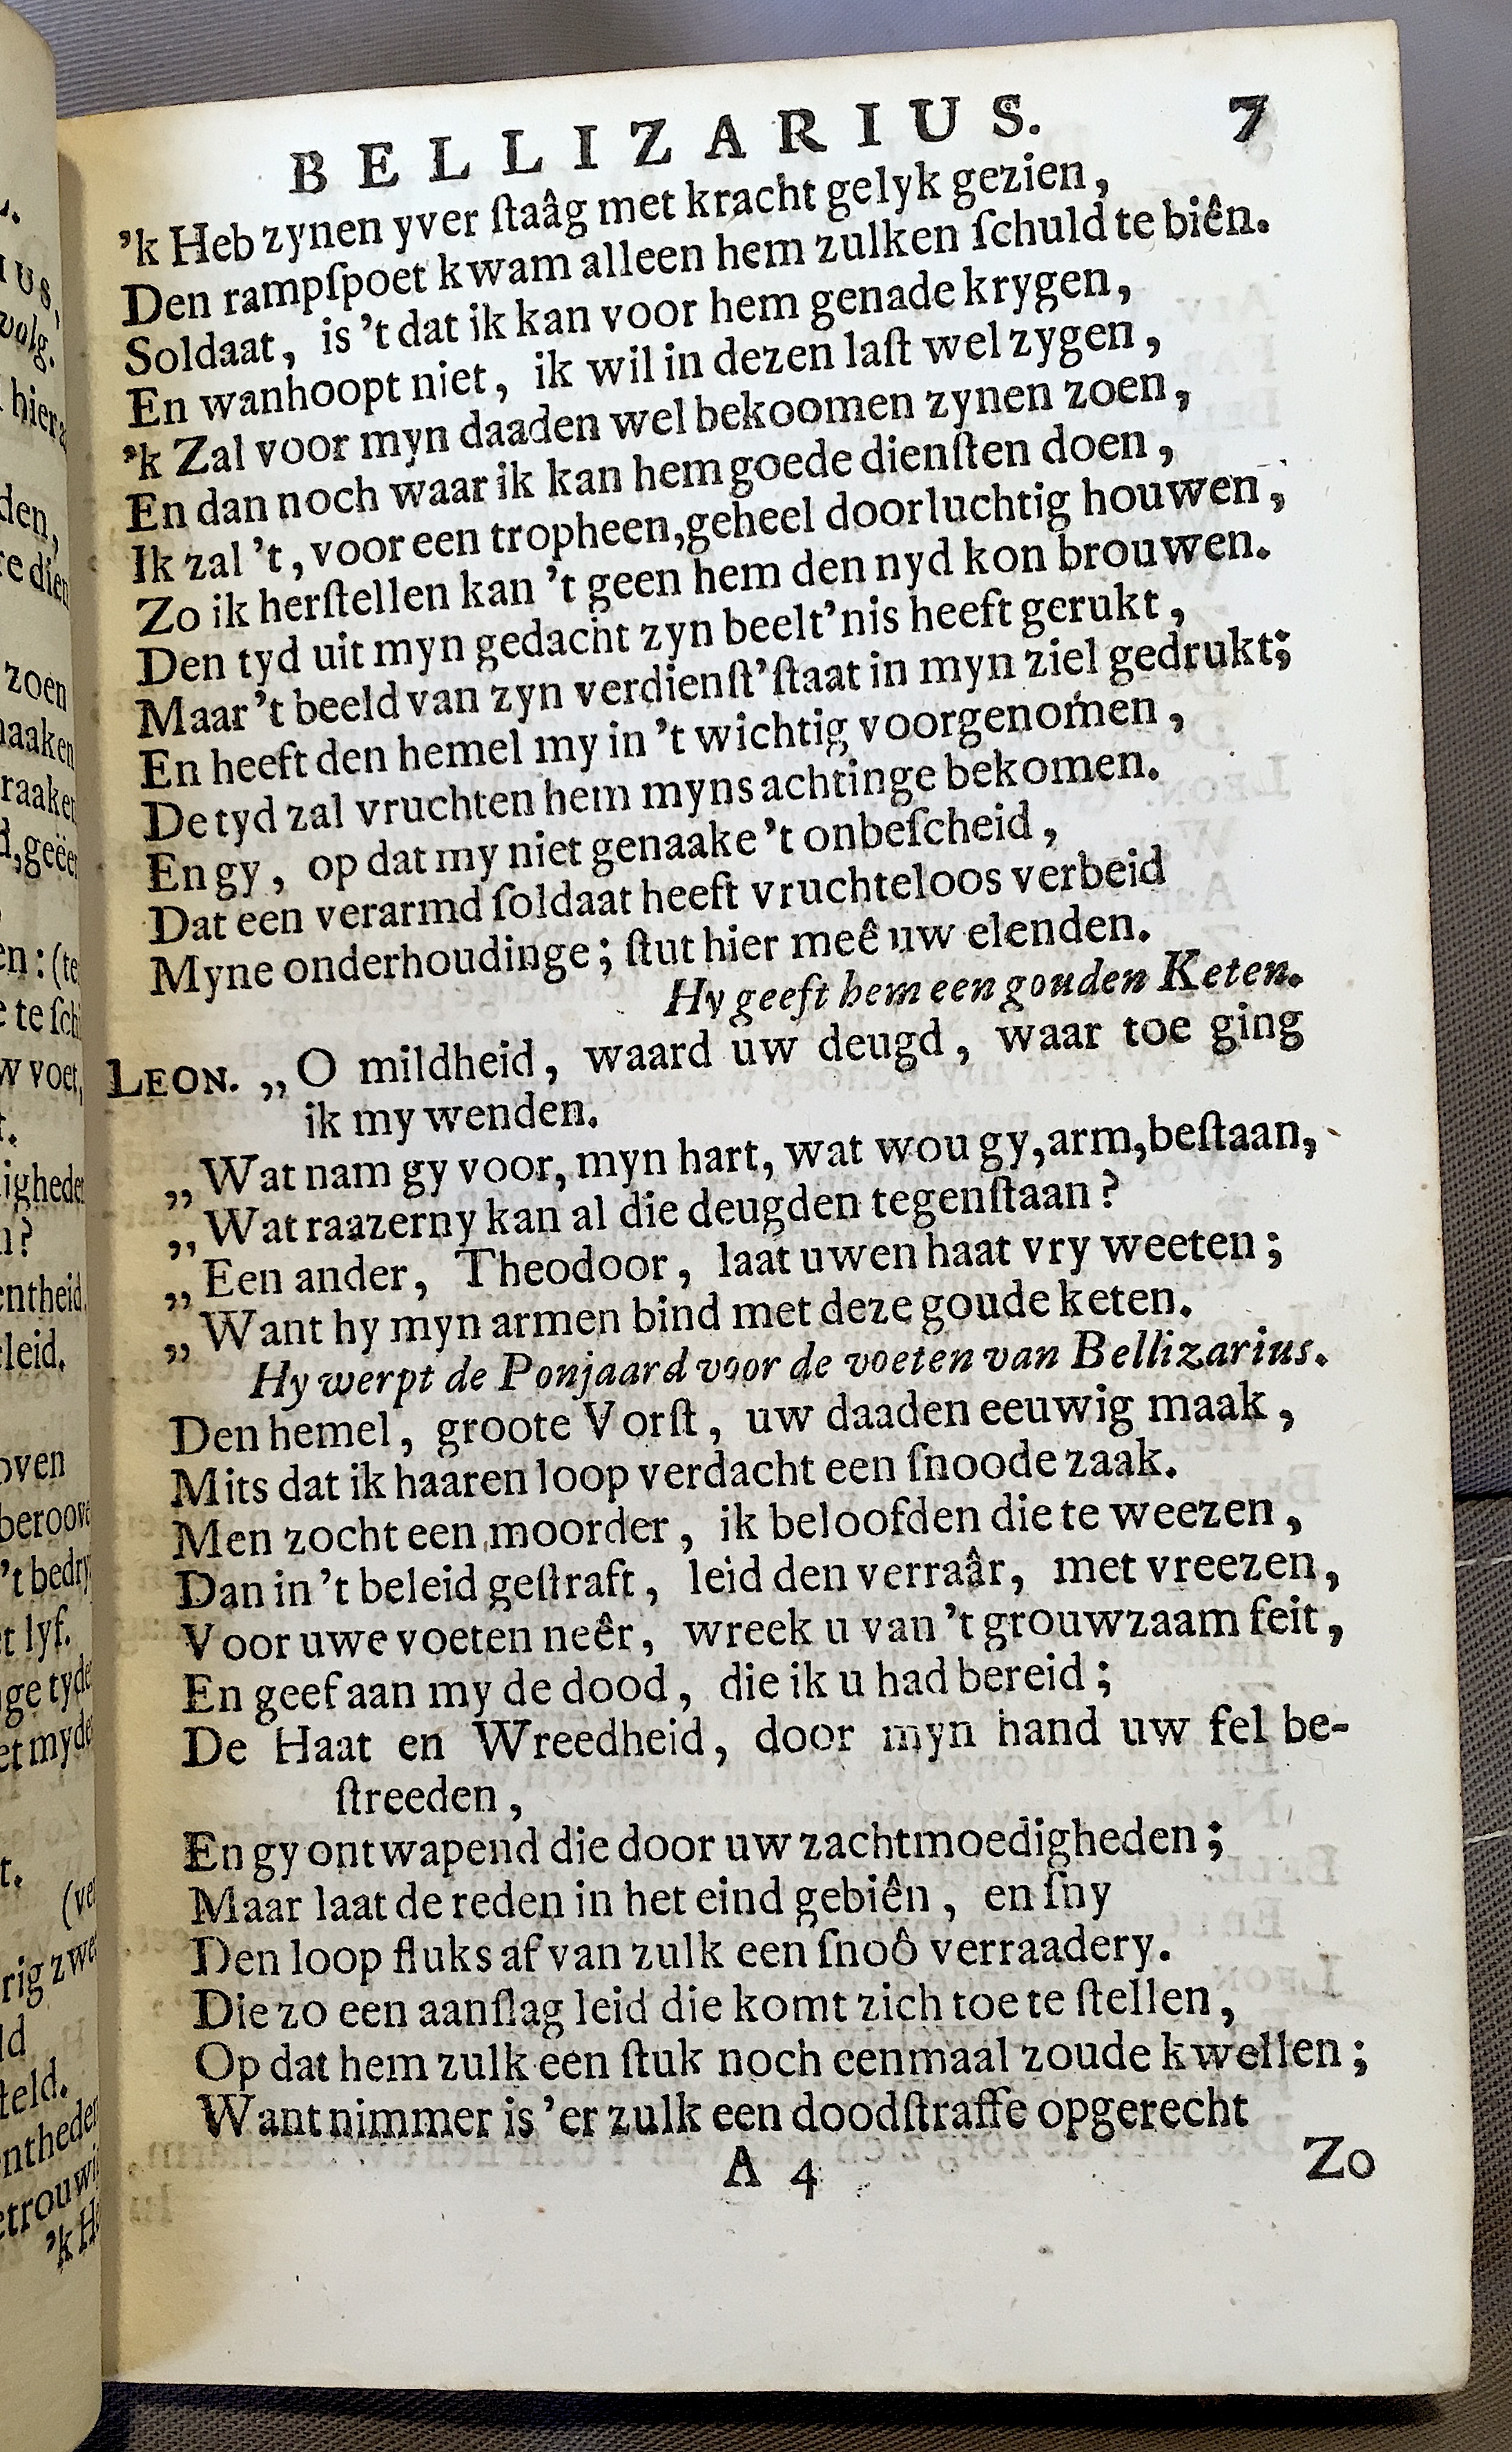 BELLIZARIUS. 7
’k Heb zynen yver ſtaâg met kracht gelyk gezien,
Den rampſpoet kwam alleen hem zulken ſchuld te biên.
Soldaat, is ’t dat ik kan voor hem genade krygen,
En wanhoopt niet, ik wil in dezen laſt wel zygen,
’k Zal voor myn daaden wel bekoomen zynen zoen,
En dan noch waar ik kan hem goede dienſten doen,
Ik zal ’t, voor een tropheen, geheel doorluchtig houwen,
Zo ik herſtellen kan ’t geen hem den nyd kon brouwen.
Den tyd uit myn gedacht zyn beelt’nis heeft gerukt,
Maar ’t beeld van zyn verdienſt’ ſtaat in myn ziel gedrukt;
En heeft den hemel my in ’t wichtig voorgenomen,
De tyd zal vruchten hem myns achtinge bekomen.
En gy, op dat my niet genaake ’t onbeſcheid,
Dat een verarmd ſoldaat heeft vruchteloos verbeid
Myne onderhoudinge; ſtut hier meê uw elenden.
Hy geeft hem een gouden Keten.
LEON. „O mildheid, waard uw deugd, waar toe ging
ik my wenden.
„Wat nam gy voor, myn hart, wat wou gy, arm, beſtaan,
„Wat raazerny kan al die deugden tegenſtaan?
„Een ander, Theodoor, laat uwen haat vry weeten;
„Want hy myn armen bind met deze goude keten.
Hy werpt de Ponjaard voor de voeten van Bellizarius.
Den hemel, groote Vorſt, uw daaden eeuwig maak,
Mits dat ik haaren loop verdacht een ſnoode zaak.
Men zocht een moorder, ik beloofden die te weezen,
Dan in ’t beleid geſtraft, leid den verraâr, met vreezen,
Voor uwe voeten neêr, wreek u van ’t grouwzaam feit,
En geef aan my de dood, die ik u had bereid;
De Haat en Wreedheid, door myn hand uw fel be-
ſtreeden,
En gy ontwapend die door uw zachtmoedigheden;
Maar laat de reden in het eind gebiên, en ſny
Den loop fluks af van zulk een ſnoô verraadery.
Die zo een aanſlag leid die komt zich toe te ſtellen,
Op dat hem zulk een ſtuk noch eenmaal zoude kwellen;
Want nimmer is ’er zulk een doodſtraffe opgerecht
A 4 Zo